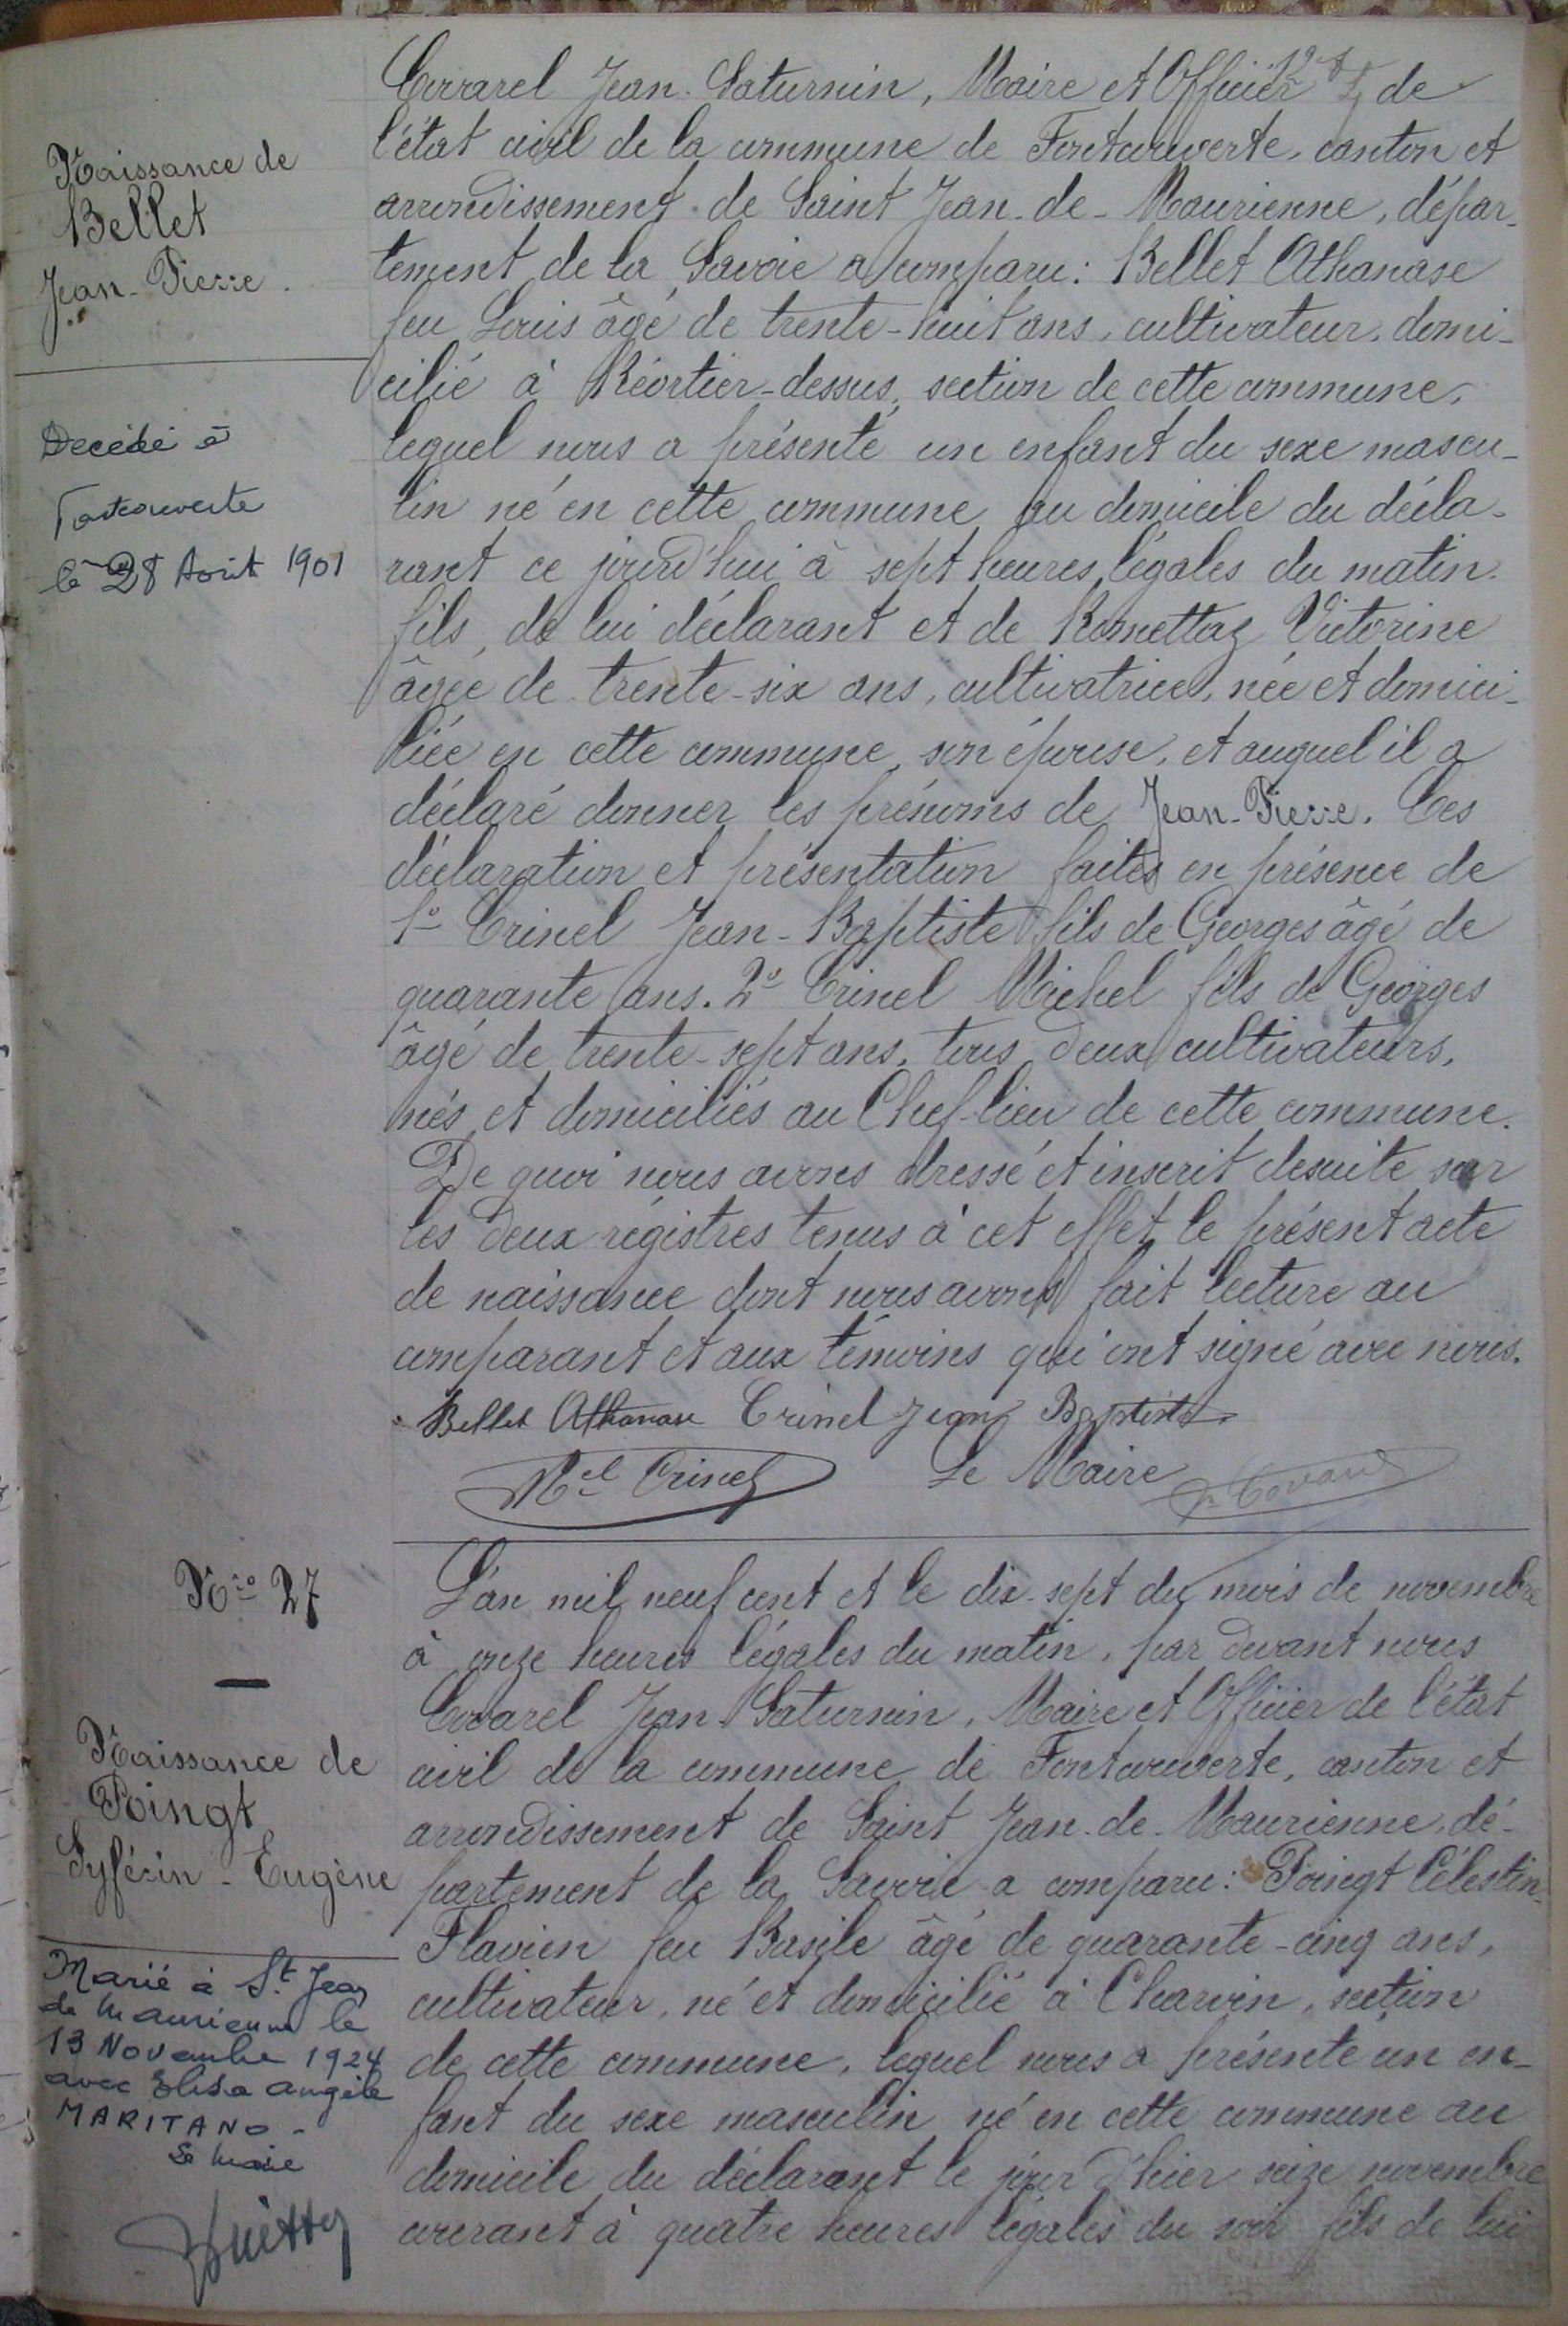 Covarel Jean-Saturnin, Maire et Officier de
l'état civil de la commune de Fontcouverte, canton et
arrondissement de Saint Jean-de-Maurienne, dépar-
tement de la Savoie a comparu : Bellet Athanase
feu Louis âgé de trente-huit ans, cultivateur, domi-
cilié à Réortier-dessus, section de cette commune,
lequel nous a présenté un enfant du sexe mascu-
lin né en cette commune au domicile du décla-
rant ce jourd'hui à sept heures légales du matin.
fils, de lui déclarant et de Romettaz Victorine
âgée de trente-six ans, cultivatrice, née et domici-
liée en cette commune, son épouse, et auquel il a
déclaré donner les prénoms de Jean-Pierre. Ces
déclaration et présentation faites en présence de
1º Crinel Jean-Baptiste fils de Georges âgé de
quarante ans. 2º Crinel Michel fils de Georges
âgé de trente-sept ans, tous deux cultivateurs,
nés et domiciliés au Chef-lieu de cette commune.
De quoi nous avons dressé et inscrit desuite sur
les deux régistres tenus à cet effet le présent acte
de naissance dont nous avons fait lecture au
comparant et aux témoins qui ont signé avec nous.
Bellet Athanase Crinel Jean Baptiste
Mel Crinel Le Maire
Naissance de
Bellet
Jean-Pierre.
Decédé à
Fontcouverte
le 28 Août 1901
Nro 27
Naissance de
Poingt
Syférin-Eugène
Marié à St. Jean
de Maurienne le
13 Novembre 1924
avec Elisa Angèle
MARITANO -
Le Maire
L'an mil neuf cent et le dix-sept du mois de novembre
à onze heures légales du matin, par devant nous
Covarel Jean Saturnin, Maire et Officier de l'état
civil de la commune de Fontcouverte, canton et
arrondissement de Saint Jean-de-Maurienne, dé-
partement de la Savoie a comparu : Poingt Célestin-
Flavien feu Basile âgé de quarante-cinq ans,
cultivateur, né et domicilié à Charvin, section
de cette commune, lequel nous a présenté un en-
fant du sexe masculin né en cette commune au
domicile du déclarant le jour d'hier seize novembre
courant à quatre heures légales du soir fils de lui